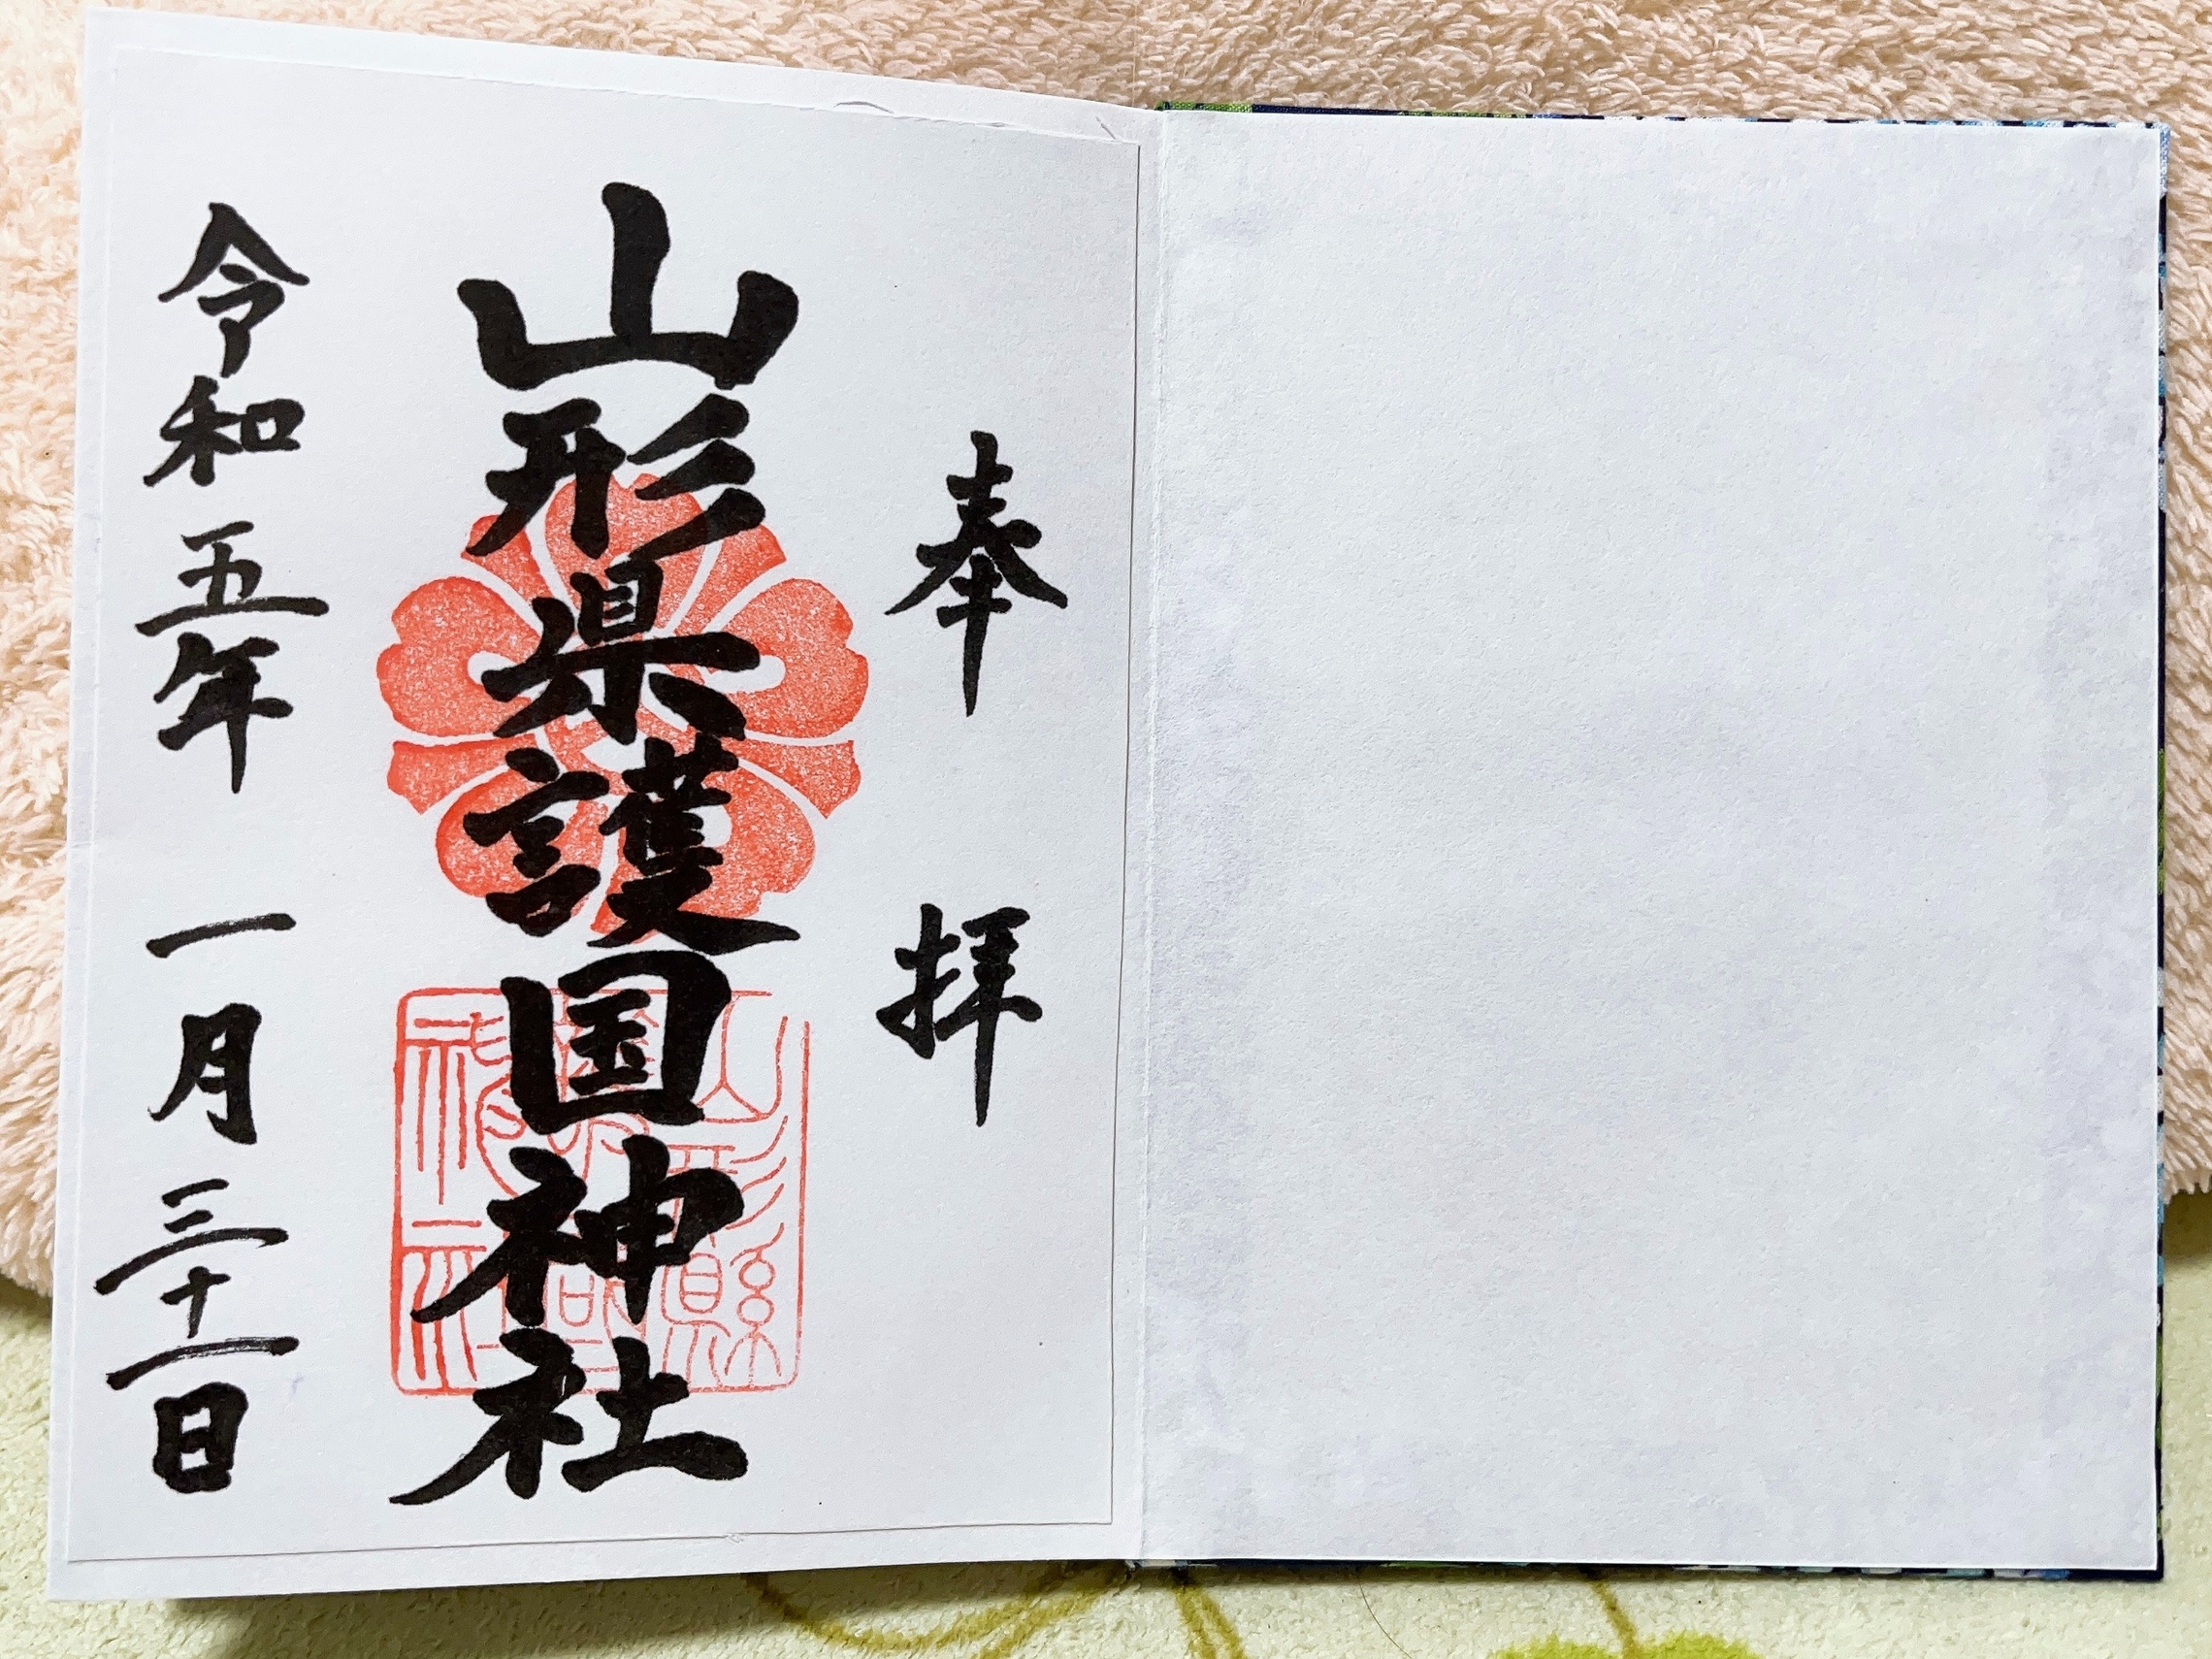 奉拝
山形県護国神社
令和五年一月三十一日